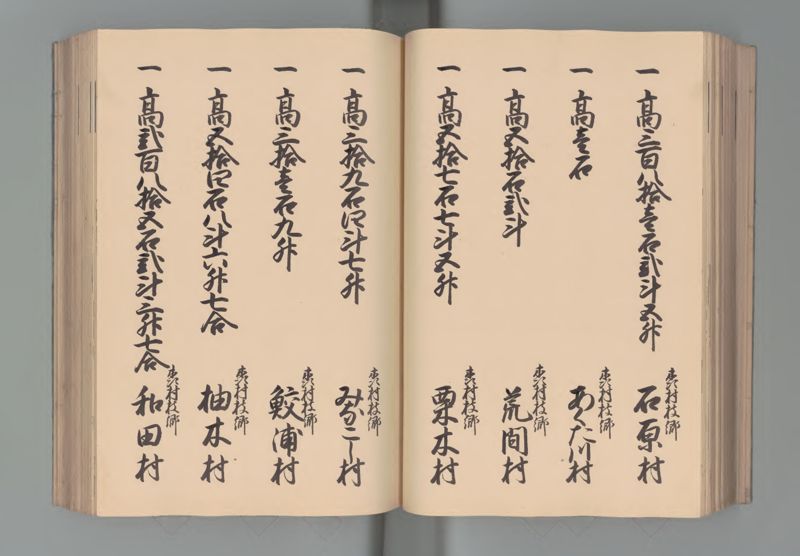 一 高三百八拾壱石弐斗五升
壱村枝郷
石原村
一 高壱石
壱村枝郷
あくた川村
一 高五拾石弐斗
壱村枝郷
荒間村
一 高五拾七石七斗五升
壱村枝郷
栗木村
一 高三拾九石四斗七升
壱村枝郷
みなこし村
一 高三拾壱石九升
壱村枝郷
鮫浦村
一 高五拾四石八斗六升七合
壱村枝郷
柚木村
一 高弐百八拾五石弐斗三升七合
壱村枝郷
和田村